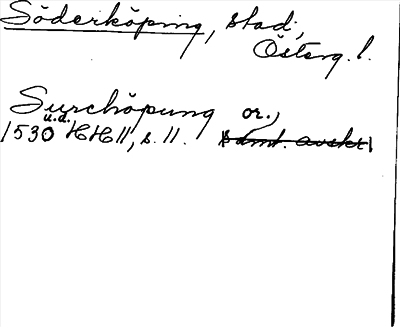 Söderköping, stad,
Österg. l.
Surchöpung or.,
u.d.
1530 HH II, s. 11. samt. avskr.